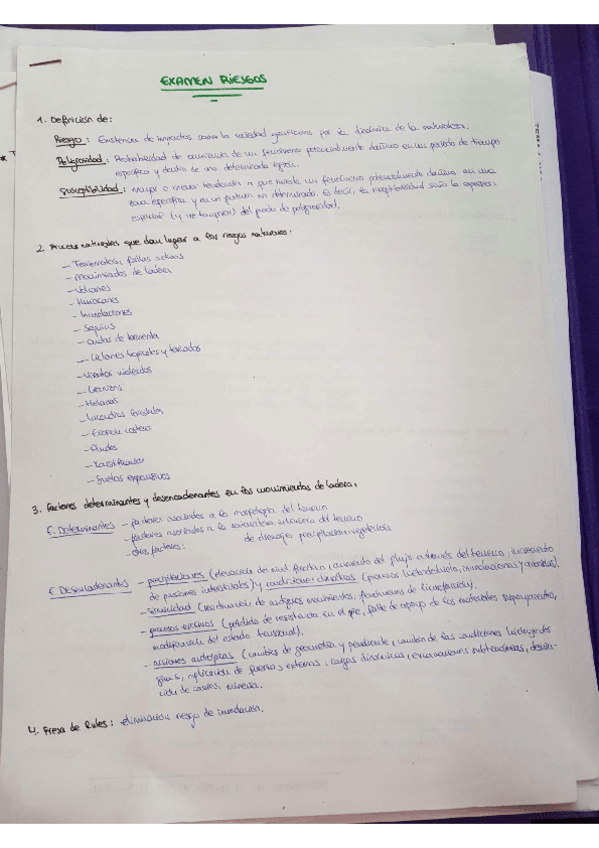 EXAMEN RIESGOS
1. Definición de:
Riesgo: Existencia de impactos sobre la sociedad generados por la dinámica de la naturaleza.
Peligrosidad: Probabilidad de ocurrencia de un fenómeno potencialmente dañino en un periodo de tiempo
específico y dentro de una determinada región.
Susceptibilidad: mayor o menor tendencia a que un fenómeno potencialmente dañino en una
zona específica y en un determinado. Es decir, la susceptibilidad sería la expresión
espacial (y no temporal) del grado de peligrosidad.
2. Procesos naturales que dan lugar a los riesgos naturales:
- Terremotos, fallas activas
- Movimientos de ladera
- Volcanes
- Huracanes
- Inundaciones
- Sequías
- Ondas de tormenta
- Ciclones tropicales y tornados
- Vientos violentos
- Heladas
- Incendios forestales
- Erosión costera
- Aludes
- Karstificación
- Suelos expansivos
3. Factores determinantes y desencadenantes en los movimientos de ladera.
F. Determinantes - factores asociados a la morfología del terreno
- factores asociados a la naturaleza del terreno
- otros factores: de drenaje, precipitación, vegetación
F. Desencadenantes - precipitaciones (elevación de nivel freático, aumento del flujo a través del terreno, incremento
de presiones intersticiales) y condiciones climáticas (procesos hielo-deshielo, inundaciones y avenidas).
- sismicidad (reactivación de antiguos movimientos, fenómenos de licuefacción).
- procesos erosivos (pérdida de resistencia en el pie, falta de apoyo de los materiales suprayacentes,
modificación del estado tensional).
- acciones antrópicas (cambios de geometría y pendiente, cambio de las condiciones
aplicación de fuerzas externas, cargas dinámicas, excavaciones subterráneas,
minería.
4. Presa de Rules: eliminación riesgo de inundación.